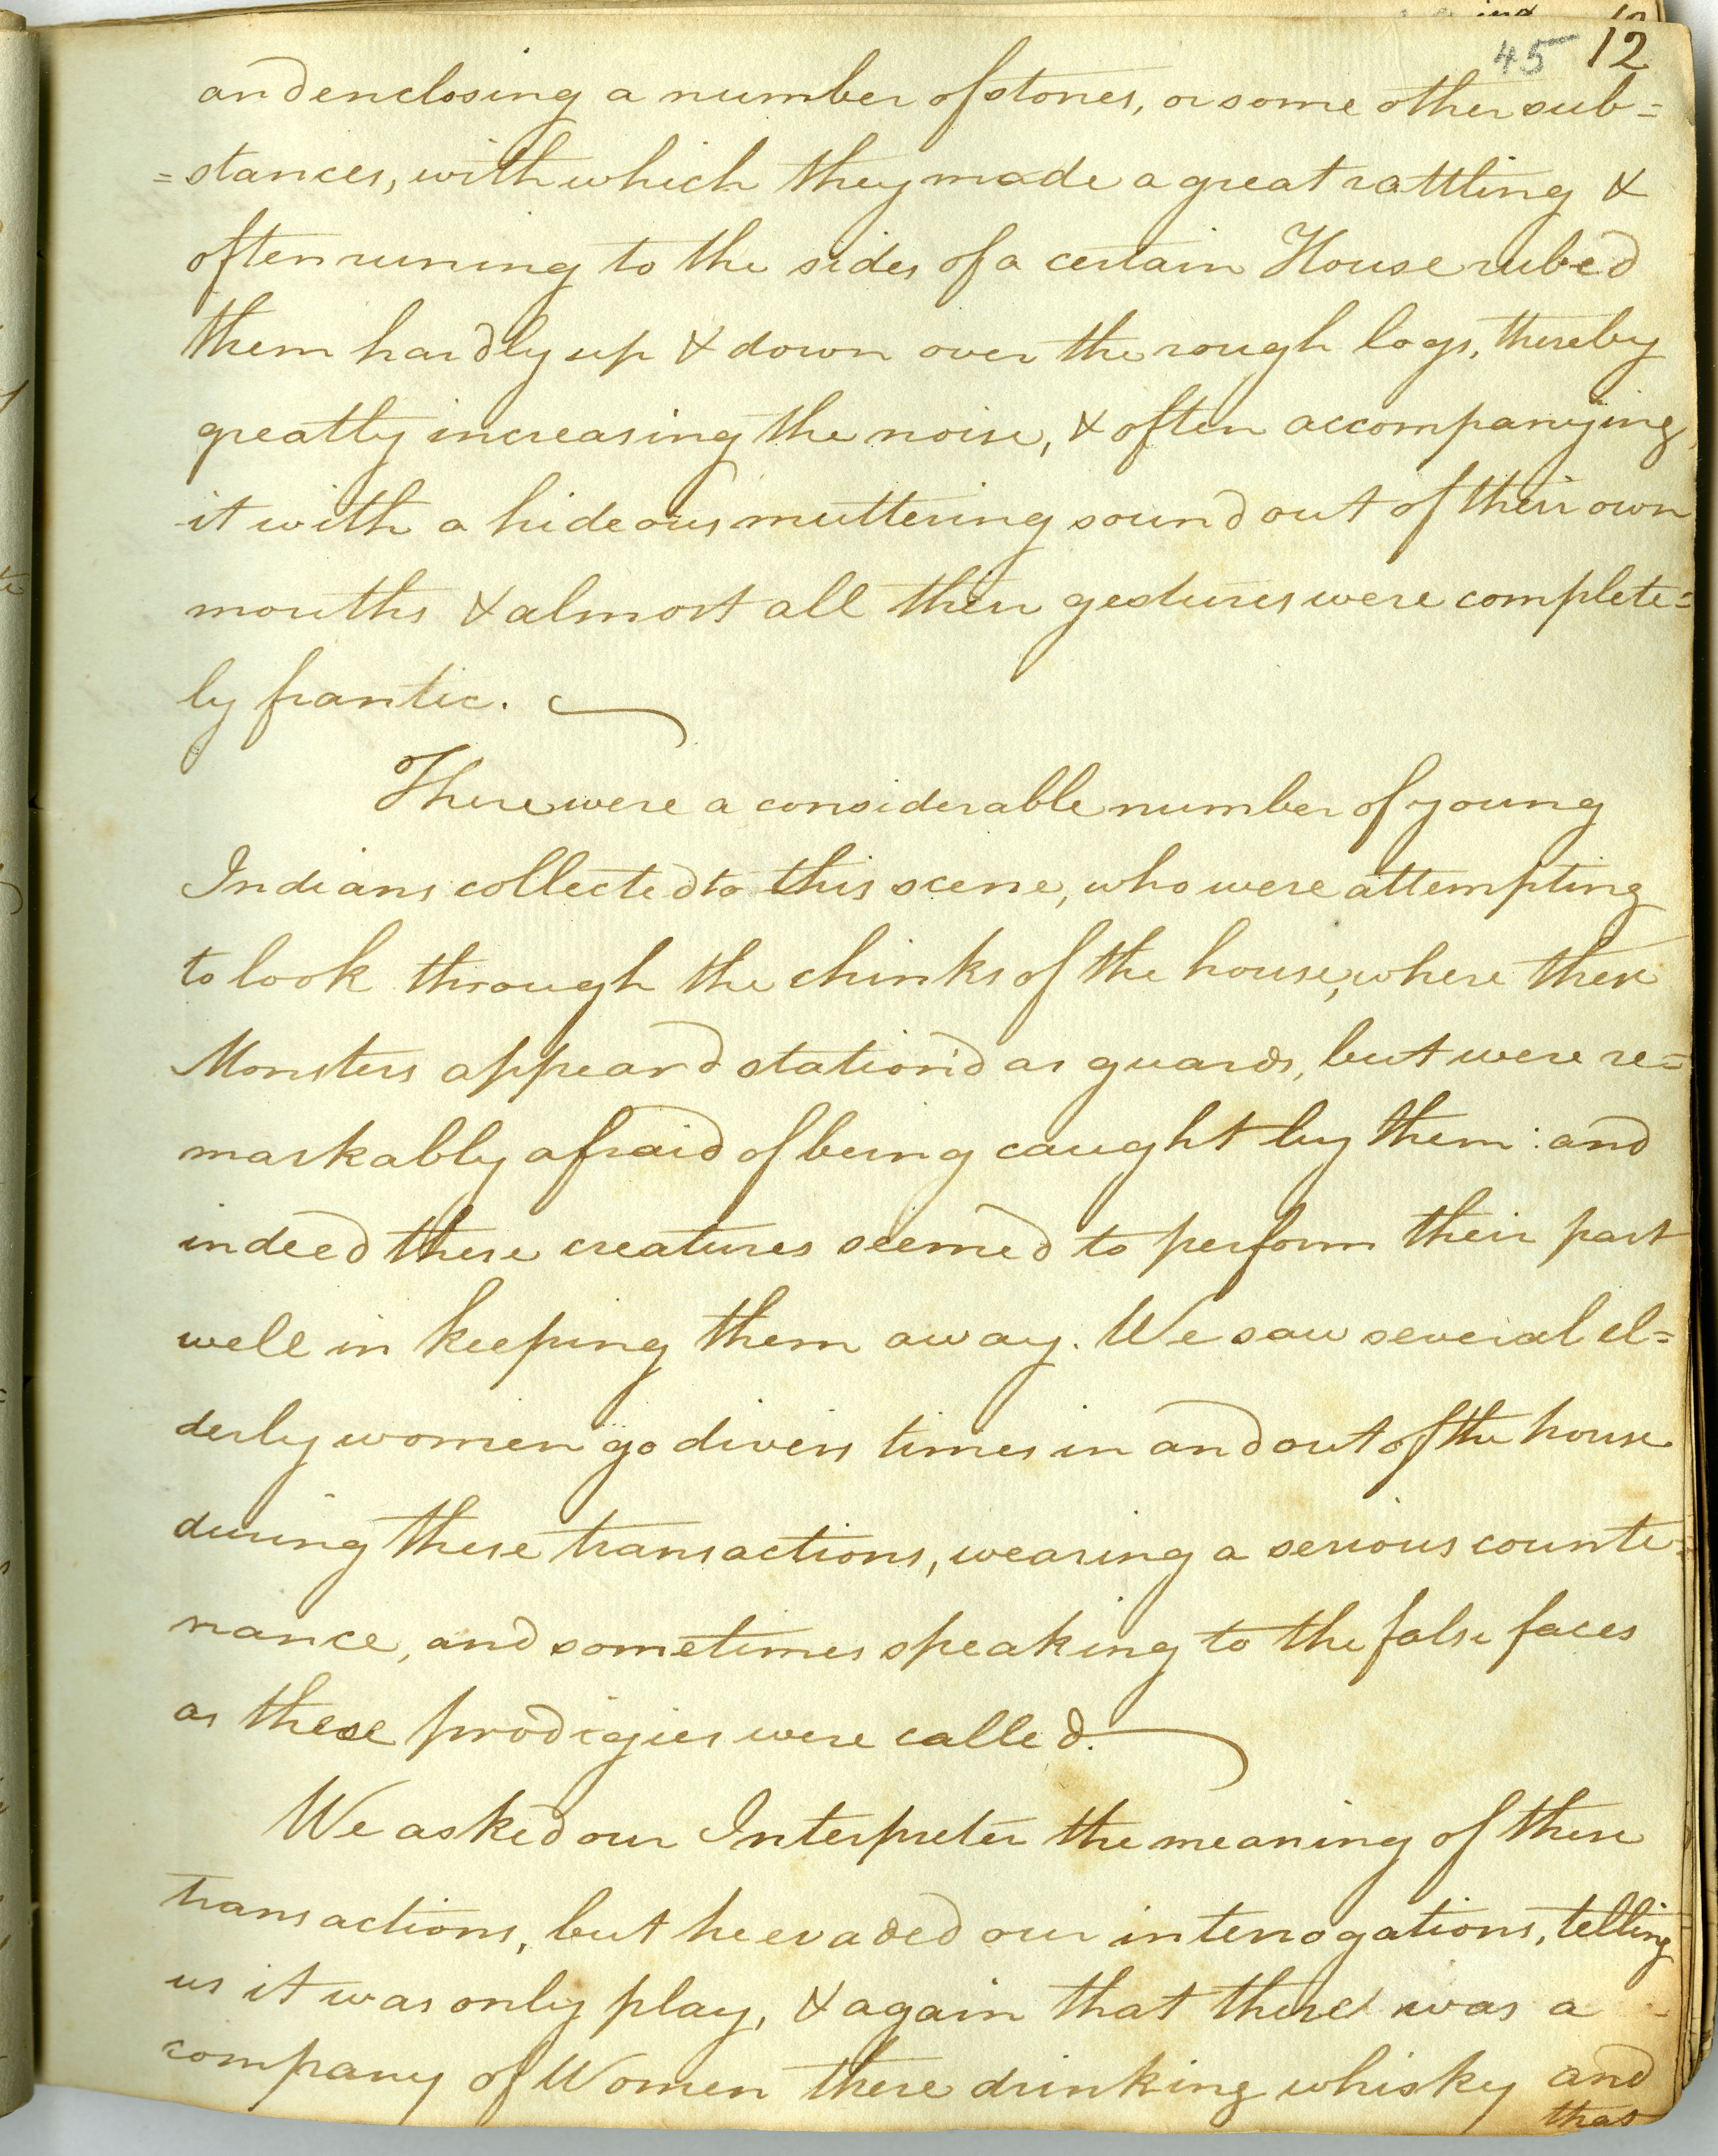 45 12
and enclosing a number of stones, or some other sub=
=stances, with which they made a great rattling &
often runing to the sides of a certain House rubed
them hardly up & down over the rough logs, thereby
greatly increasing the noise, & often accompanying
it with a hideous muttering sound out of their own
mouths & almost all their gestures were complete=
ly frantic.
There were a considerable number of young
Indians collected to this scene, who were attempting
to look through the chinks of the house, where these
Monsters appeard station'd as guards, but were re=
markably afraid of being caught by them: and
indeed these creatures seemed to perform their part
well in keeping them away. We saw several el=
derly women go divers times in and out of the house
during these transactions, wearing a serious counte=
nance, and sometimes speaking to the false faces
as these prodigies were called.
We asked our Interpreter the meaning of these
transactions, but he evaded our interrogations, telling
us it was only play, & again that there was a
company of Women there drinking whisky and
that